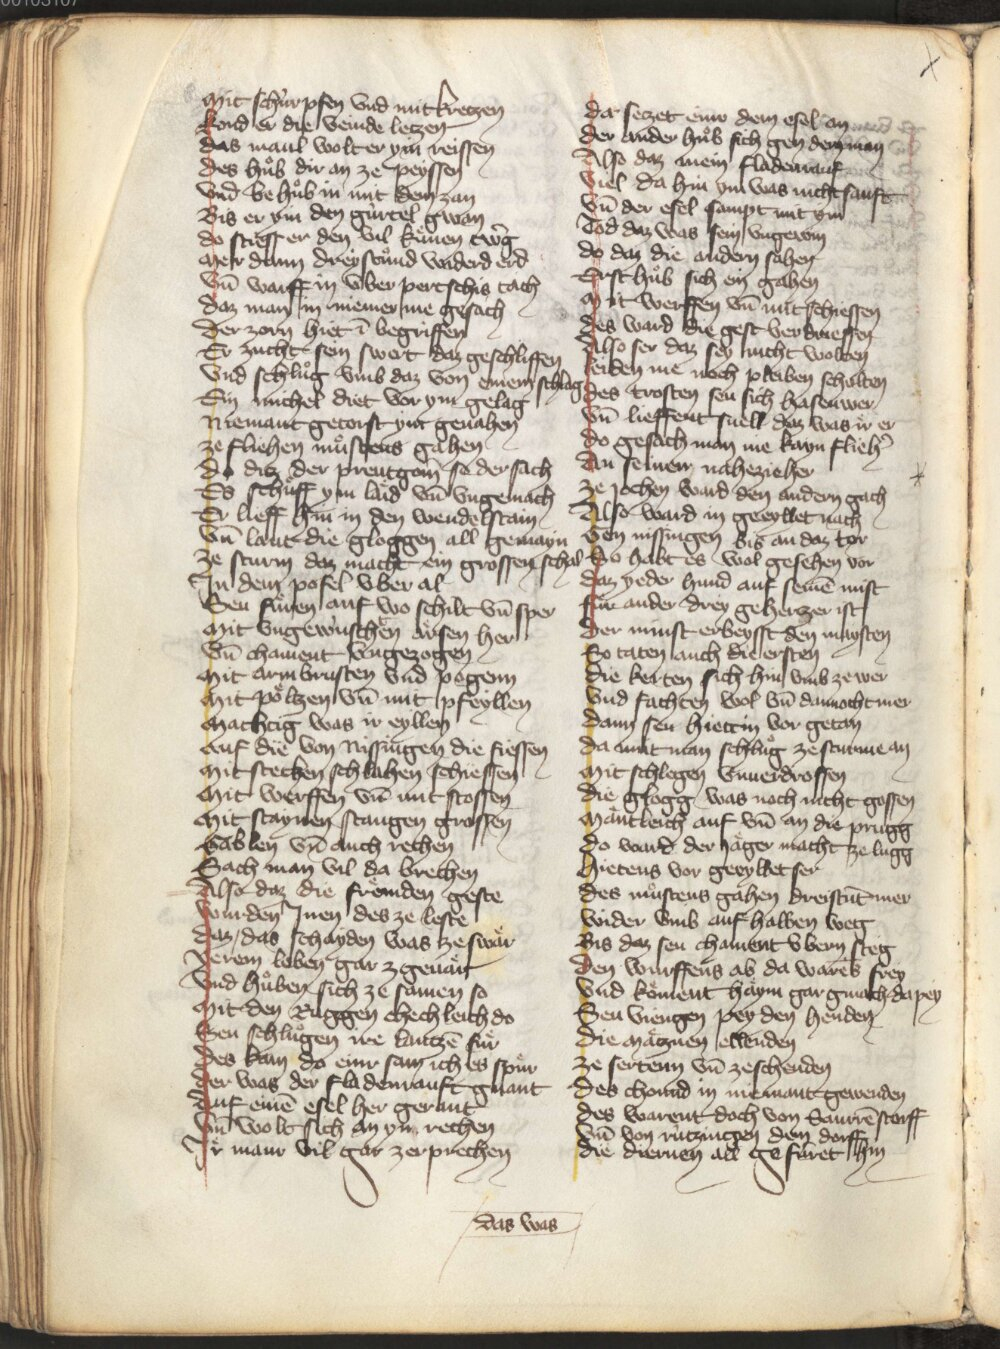 00103107
Mit schürpfen vnd mit kretzen
Kond er die veinde letzen
das maul wolt er ym reissen
des hůb dir an ze peyssen
vnd behůb in mit den zan
Bis er ym den gürtel gwan
do stiess er den vil küenen twerg
Mer dann dreystůnd wider d erd
vñ warff in vber pertschis tach
daz man in niemer me gesach
Der zorn hiet ī begriffen
Er zucht sein swert daz geschliffen
vnd schlůg vmb daz von einem schlag
Ein michel diet vor ym gelag
Niemant getorst ym genahen
ze fliehen můstens gahen
Do diez der preutgom so der sach
Es schůff ym laid vñ vngemach
Er lieff hin in den wendelstain
vñ laut die gloggen all gemayn
ze sturm daz macht ein grossen schal
In dem pofel vber al
Seu füren auf wo schilt vñ sper
Mit vngewüschen ärsen her
vñ chament vngezogen
Mit armbrusten vnd pogenn
Mit pöltzen vñ mit pfeyllen
Machtig was ir eyllen
Auf die von Nissingen die fiessen
Mit stecken schlahen schiessen
Mit werffen vñ mit stossen
Mit staynen stangen grossen
Gablen vñ auch rechen
Sach man vil da brechen
Also daz die frömden geste
wurden Inen des ze leste
daz das schayden was ze swär
Jerem leben gar zgeuär
vnd hůben sich ze samen so
Mit den Ruggen chechleich do
Seu schlůgen ire lantzē für
des kam do einr sam ich es spür
der was der fladenrauft gnant
Auf einē esel her gerant
vñ wolt sich an ym rechen
Ir maur vil gar zerprechen
da sezet einr dem esel an
der ander hůb sich gen dem man
Also daz mein fladenrauf
viel da hin ym was nicht sauft
vñ der esel sampt mit ym
Tod daz was sein vngewin
do daz die andern sahen
Erst hůb sich ein gahen
Mit werffen vñ mit schiessen
des ward die gest verdriessen
Also ser daz sey nicht wolten
leiden me noch pleiben scholten
des trosten seu sich hasenwer
vñ lieffent snell daz was ir er
do gesach man nie kayn flieh̄
An seinem nahezieher
ze jochen ward den andern gach
Also ward in geeyllet nach
Gen nissingen bis an daz tor
Do habt es wol gesehen vor
daz yeder hund auf seinē mist
für ander drey geherzer ist
Der minst erbeysst den maysten
So taten auch die ersten
die kerten sich hin vmb ze wer
vnd fachten wol vñ dannocht mer
dann seu hiettin vor getan
da mit man schlůg ze sturme an
Mit schlegen vnuerdrossen
die glogg was noch nicht gossen
Mantleich auf vñ an die prugg
do ward der Jäger macht ze lugg
hietens vor geeyllet ser
des můstens gahen dreistūt mer
wider vmb auf halben weg
Bis daz seu chament vbern steg
Den wurffens ab da warēs frey
vnd köment haym gar gmach da pey
Seu viengen pey den henden
die Mätznen ellenden
ze sertenn vñ ze schenden
des chomd in niemant gewenden
des warent doch von Saurrēstorff
vñ von rützingen dem dorff
die diernen all gefüret hin
das was